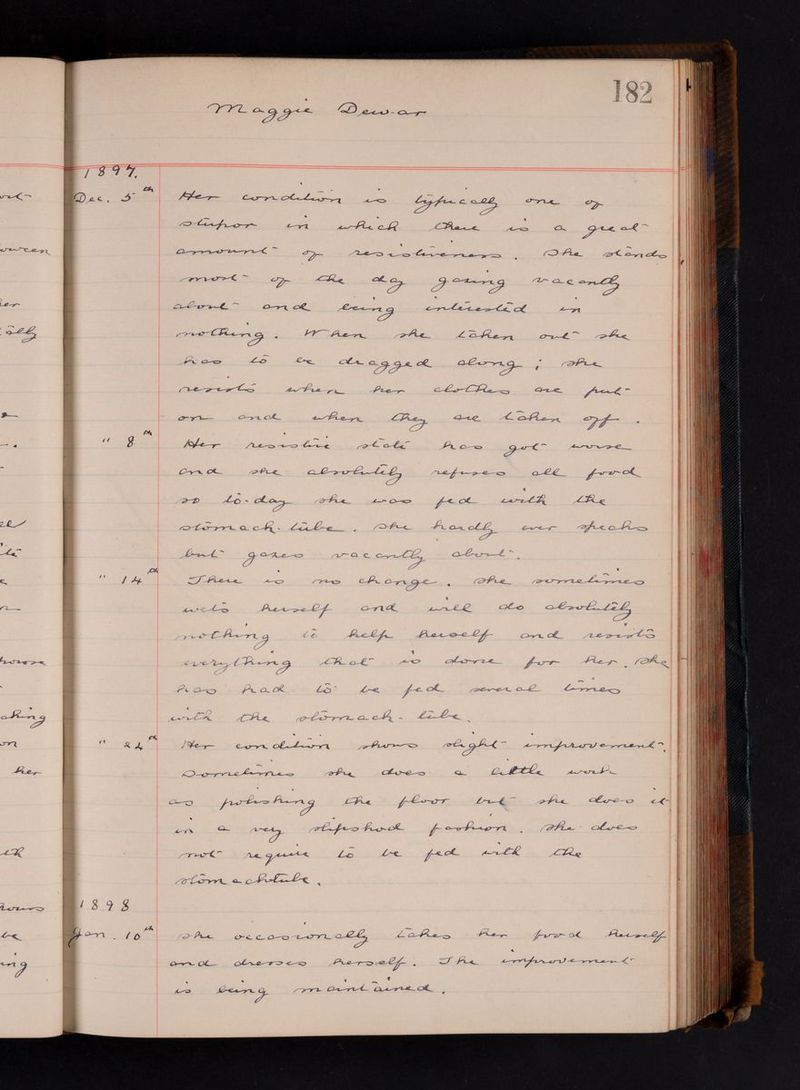 182
Maggie Dewar
1897.
Dec. 5th Her condition is typically one of
stupor in which there is a great
amount of resistiveness. She stands
most of the day gazing vacantly
about and being interested in
nothing. When she taken out she
has to be dragged along; she
resists when her clothes are put
on and when they are taken off.
" 8th Her resistive state has got worse
and she absolutely refuses all food
so to-day she was fed with the
stomach-tube. She hardly ever speaks
but gazes vacantly about.
" 14th There is no change. She sometimes
wets herself and will do absolutely
nothing to help herself and resists
everything that is done for her. She
has had to be fed several times
with the stomach-tube.
" 24th Her condition shows slight improvement.
Sometimes she does a little work
as polishing the floor but she does it
in a very slipshod fashion. She does
not require to be fed with the
stomachtube.
1898
Jan. 10th She occasionally takes her food herself
and dresses herself. The improvement
is being maintained.